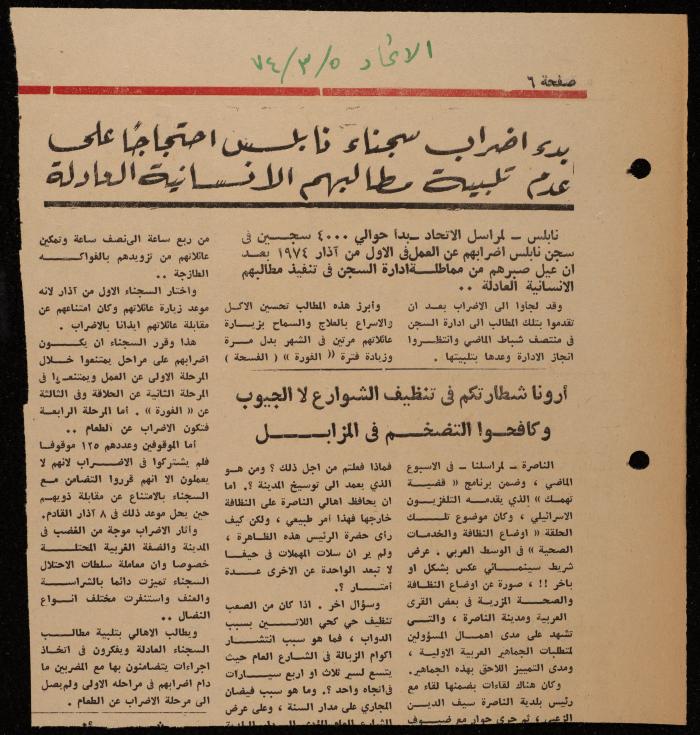 الاتحاد ٧٤/٣/٥
صفحة ٦
بدء اضراب سجناء نابلس احتجاجًا على
عدم تلبية مطالبهم الانسانية العادلة
نابلس ــ لمراسل الاتحاد ــ بدأ حوالي ٤٠٠٠ سجين في
سجن نابلس اضرابهم عن العمل في الاول من آذار ١٩٧٤ بعد
ان عيل صبرهم من مماطلة ادارة السجن في تنفيذ مطالبهم
الانسانية العادلة ..
وقد لجاوا الى الاضراب بعد ان
تقدموا بتلك المطالب الى ادارة السجن
في منتصف شباط الماضي وانتظروا
انجاز الادارة وعدها بتلبيتها .
وأبرز هذه المطالب تحسين الاكل
والاسراع بالعلاج والسماح بزيارة
عائلاتهم مرتين في الشهر بدل مرة
وزيادة فترة (( الفورة )) ( الفسحة )
من ربع ساعة الى نصف ساعة وتمكين
عائلاتهم من تزويدهم بالفواكه
الطازجة ..
واختار السجناء الاول من آذار لانه
موعد زيارة عائلاتهم وكان امتناعهم عن
مقابلة عائلاتهم ايذانا بالاضراب .
هذا وقرر السجناء ان يكون
اضرابهم على مراحل يمتنعوا خلال
المرحلة الاولى عن العمل ويمتنعوا في
المرحلة الثانية عن الحلاقة وفي الثالثة
عن « الفورة » . أما المرحلة الرابعة
فتكون الاضراب عن الطعام ..
أما الموقوفين وعددهم ١٢٥ موقوفا
فلم يشتركوا في الاضراب لانهم لا
يعملون الا انهم قرروا التضامن مع
السجناء بالامتناع عن مقابلة ذويهم
حين يحل موعد ذلك في ٨ آذار القادم.
وأثار الاضراب موجة من الغضب في
المدينة والضفة الغربية المحتلة
خصوصا وان معاملة سلطات الاحتلال
السجناء تميزت دائما بالشراسة
والعنف واستنفرت مختلف انواع
النضال ..
ويطالب الاهالي بتلبية مطالب
السجناء العادلة ويفكرون في اتخاذ
اجراءات يتضامنون بها مع المضربين ما
دام اضرابهم في مراحله الاولى ولم يصل
الى مرحلة الاضراب عن الطعام .
أرونا شطارتكم في تنظيف الشوارع لا الجيوب
وكافحوا التضخم في المزابل
الناصرة ــ لمراسلنا ــ في الاسبوع
الماضي ، وضمن برنامج « قضية
تهمك » الذي يقدمه التلفزيون
الاسرائيلي ، وكان موضوع تلك
الحلقة « اوضاع النظافة والخدمات
الصحية » في الوسط العربي . عرض
شريط سينمائي عكس بشكل او
باخر !! ، صورة عن اوضاع النظافة
والصحة المزرية في بعض القرى
العربية ومدينة الناصرة ، والتي
تشهد على مدى اهمال المسؤولين
لمتطلبات الجماهير العربية الاولية ،
ومدى التمييز اللاحق بهذه الجماهير.
وكان هناك لقاءات بضمنها لقاء مع
رئيس بلدية الناصرة سيف الدين
الزعبي ، ثم جرى حوار مع ضيوف
فماذا فعلتم من اجل ذلك ؟ ومن هو
الذي يعمد الى توسيخ المدينة ؟. اما
ان يحافظ اهالي الناصرة على النظافة
خارجها فهذا أمر طبيعي ، ولكن كيف
رأى حضرة الرئيس هذه الظاهرة ،
ولم ير ان سلات المهملات في حيفا
لا تبعد الواحدة عن الاخرى عدة
أمتار ؟.
وسؤال اخر . اذا كان من الصعب
تنظيف حي كحي اللاتين بسبب
الدواب ، فما هو سبب انتشار
اكوام الزبالة في الشارع العام حيث
يتسع لسير ثلاث او اربع سيارات
في اتجاه واحد ؟. وما هو سبب فيضان
المجاري على مدار السنة ، وعلى عرض